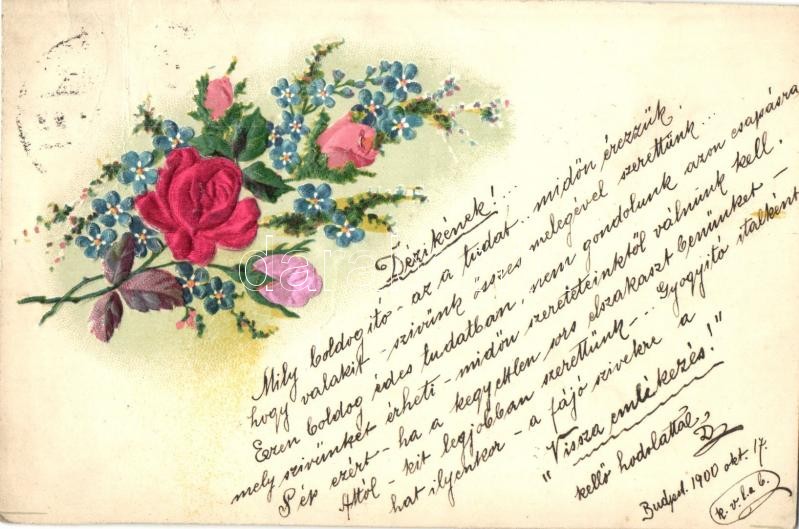 Dézikének!...
Mily boldogító - az a tudat.. midőn érezzük,
hogy valakit - szivünk összes melegével szerettünk...
Ezen boldog édes tudatban, nem gondolunk azon csapásra
mely szivünket érheti - midőn szeretteinktől válnunk kell.
S ép ezért - ha a kegyetlen sors elszakaszt benünket -
Attól - kit legjobban szerettünk -... Gyógyitó italként
hat ilyenkor - a fájó szivekre a
"Vissza emlékezés!"
kellő hodolattal,
D
Budpst. 1900 okt. 17.
k. v. l. a. b.
darabanth